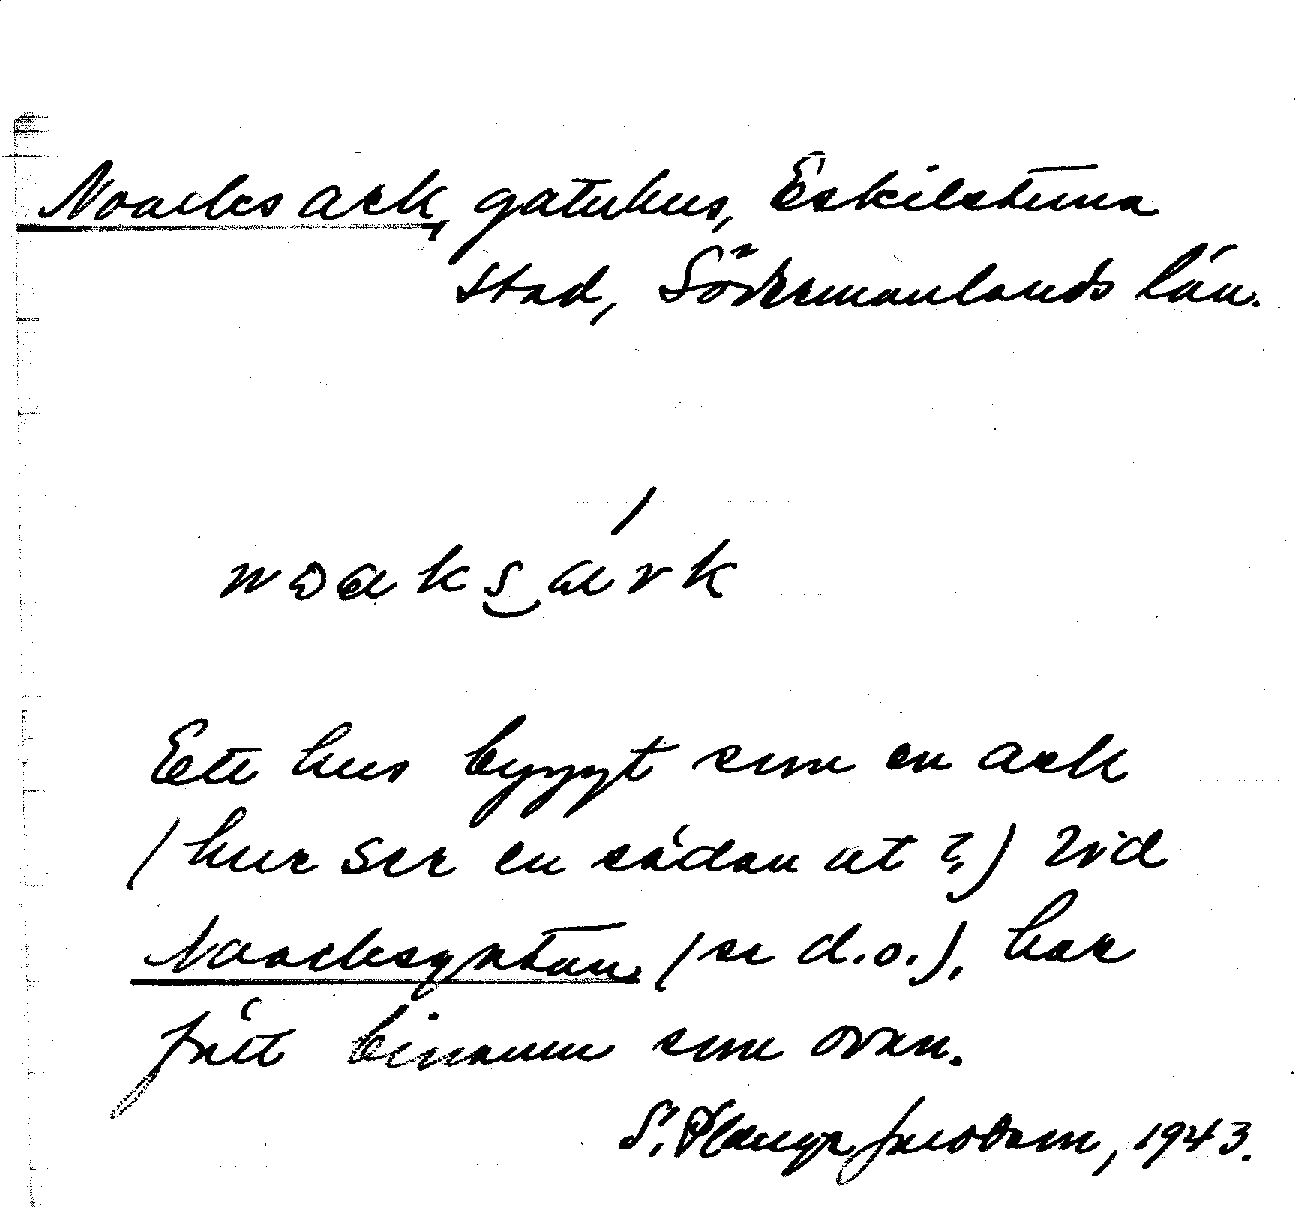 Noacks ark, gatuhus, Eskilstuna
stad, Södermanlands län.
noaksárk
Ett hus byggt som en ark
(hur ser en sådan ut?) vid
(se d.o.), har
fått binamn som ovan.
S. Jacobson, 1943.